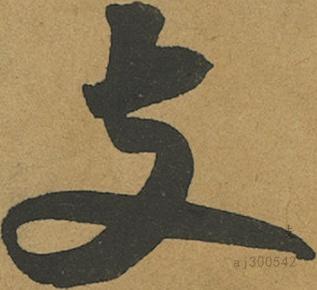 支
aj300542